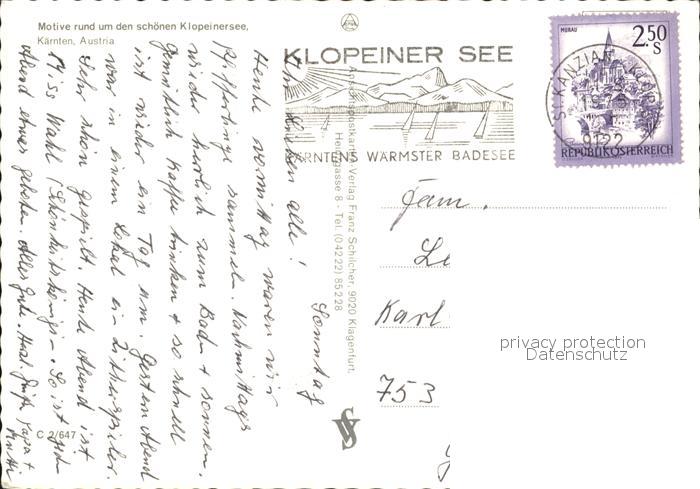 Motive rund um den schönen Klopeinersee,
Kärnten, Austria
KLOPEINER SEE
KÄRNTENS WÄRMSTER BADESEE
MURAU
2.50
S
ST. KANZIAN
9122
REPUBLIK ÖSTERREICH
Ansichtspostkarten-Verlag Franz Schilcher, 9020 Klagenfurt,
Herrengasse 8 - Tel. (04222) 85228
Sonntag
Ihr Lieben alle!
Heute vormittag waren wir
Pfifferlinge sammeln. Nachmittags
wieder herrlich zum Baden + sonnen.
Gemütlich Kaffee trinken + so schnell
ist wieder ein Tag um. Gestern Abend
war in einem Lokal ein Zitherspieler.
Sehr schön gespielt. Heute Abend ist
Miss Wahl (Schönheitskönigin. So ist jeden
Abend etwas geboten. Alles Gute. Herzl. Grüße Papa +
Mutti
Fam.
Le
Karl
753
privacy protection
Datenschutz
C 2/647